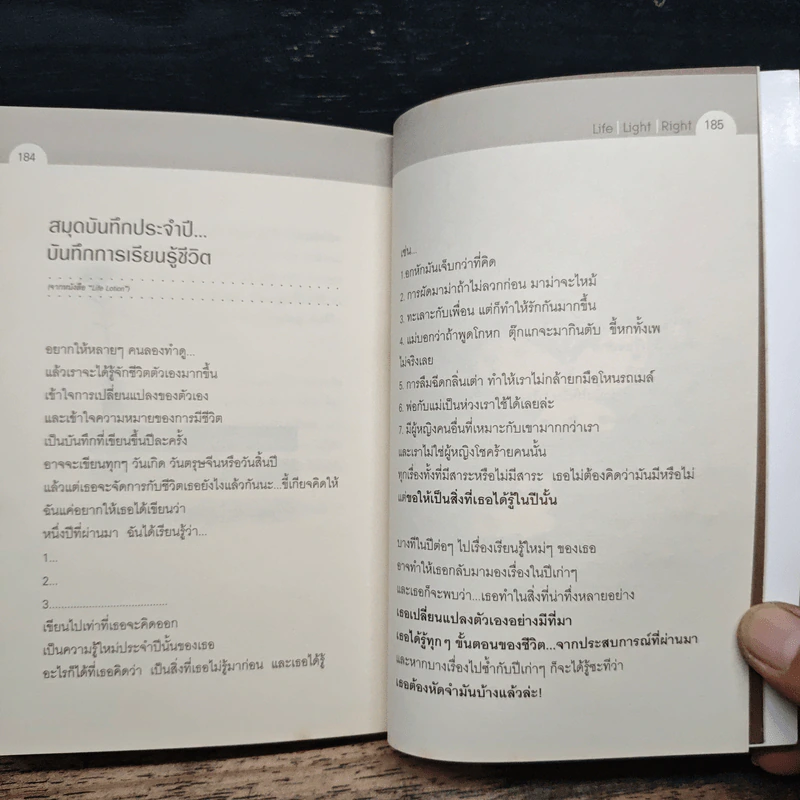 184
สมุดบันทึกประจำปี...
บันทึกการเรียนรู้ชีวิต
(จากหนังสือ "Life Lotion")
อยากให้หลายๆ คนลองทำดู...
แล้วเราจะได้รู้จักชีวิตตัวเองมากขึ้น
เข้าใจการเปลี่ยนแปลงของตัวเอง
และเข้าใจความหมายของการมีชีวิต
เป็นบันทึกที่เขียนขึ้นปีละครั้ง
อาจจะเขียนทุกๆ วันเกิด วันตรุษจีนหรือวันสิ้นปี
แล้วแต่เธอจะจัดการกับชีวิตเธอยังไงแล้วกันนะ...ขี้เกียจคิดให้
ฉันแค่อยากให้เธอได้เขียนว่า
หนึ่งปีที่ผ่านมา ฉันได้เรียนรู้ว่า...
1...
2...
3....................................
เขียนไปเท่าที่เธอจะคิดออก
เป็นความรู้ใหม่ประจำปีนั้นของเธอ
อะไรก็ได้ที่เธอคิดว่า เป็นสิ่งที่เธอไม่รู้มาก่อน และเธอได้รู้
Life | Light | Right 185
เช่น...
1.อกหักมันเจ็บกว่าที่คิด
2. การผัดมาม่าถ้าไม่ลวกก่อน มาม่าจะไหม้
3. ทะเลาะกับเพื่อน แต่ก็ทำให้รักกันมากขึ้น
4. แม่บอกว่าถ้าพูดโกหก ตุ๊กแกจะมากินตับ ขี้หกทั้งเพ
ไม่จริงเลย
5. การลืมฉีดกลิ่นเต่า ทำให้เราไม่กล้ายกมือโหนรถเมล์
6. พ่อกับแม่เป็นห่วงเราใช้ได้เลยล่ะ
7. มีผู้หญิงคนอื่นที่เหมาะกับเขามากกว่าเรา
และเราไม่ใช่ผู้หญิงโชคร้ายคนนั้น
ทุกเรื่องทั้งที่มีสาระหรือไม่มีสาระ เธอไม่ต้องคิดว่ามันมีหรือไม่
แต่ขอให้เป็นสิ่งที่เธอได้รู้ในปีนั้น
บางทีในปีต่อๆ ไปเรื่องเรียนรู้ใหม่ๆ ของเธอ
อาจทำให้เธอกลับมามองเรื่องในปีเก่าๆ
และเธอก็จะพบว่า...เธอทำในสิ่งที่น่าทึ่งหลายอย่าง
เธอเปลี่ยนแปลงตัวเองอย่างมีที่มา
เธอได้รู้ทุกๆ ขั้นตอนของชีวิต...จากประสบการณ์ที่ผ่านมา
และหากบางเรื่องไปซ้ำกับปีเก่าๆ ก็จะได้รู้ซะทีว่า
เธอต้องหัดจำมันบ้างแล้วล่ะ!